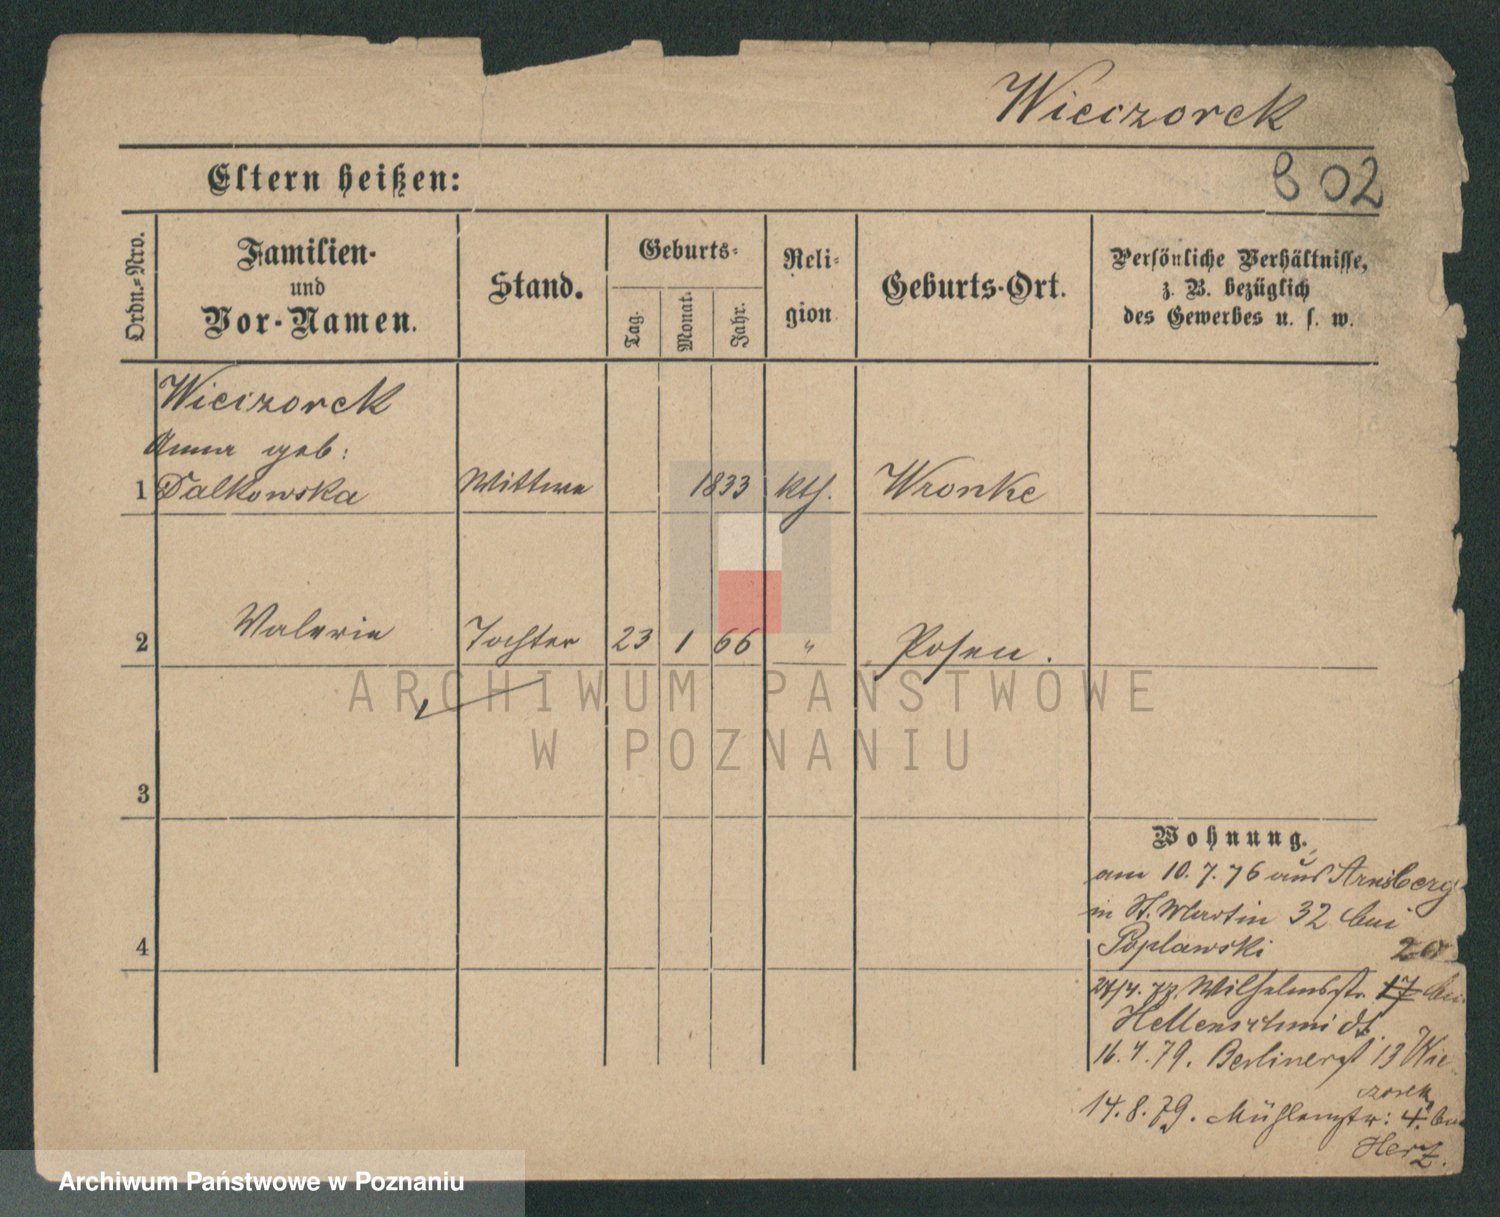 Wieczorek
802
Eltern heißen:
Ordn.-Nro.
Familien-
und
Vor-Namen.
Stand.
Geburts-
Tag.
Monat.
Jahr.
Reli-
gion
Geburts-Ort.
Persönliche Verhältnisse,
z. B. bezüglich
des Gewerbes u. s. w.
Wieczorek
Anna geb:
1 Dalkowska Wittwe 1833 kth. Wronke
2 Valerie Tochter 23 1 66 " Posen.
3
4
Wohnung.
am 10.7.76 aus Arnsberg
in St. Martin 32 bei
Poplawski
Wilhelmsstr. 17 bei
Hellenschmidt.
16.4.79. Berlinerst 13 Wie
czorek
14.8.79. Mühlenstr: 4. bei
Herz.
ARCHIWUM PAŃSTWOWE
W POZNANIU
Archiwum Państwowe w Poznaniu